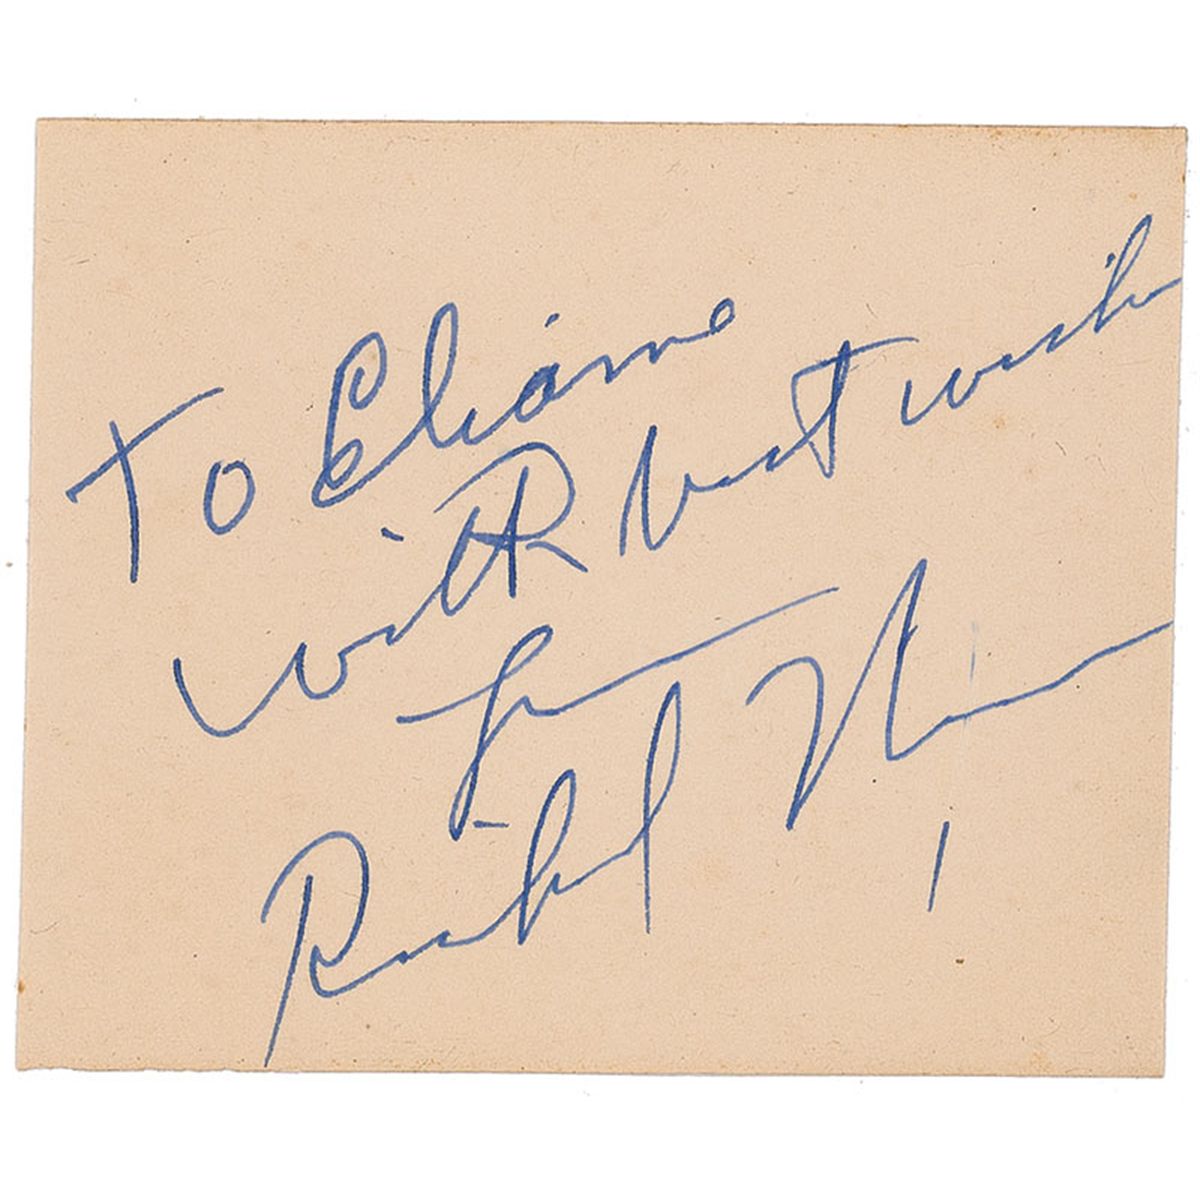 To Eliane
with best wishes
from
Richard